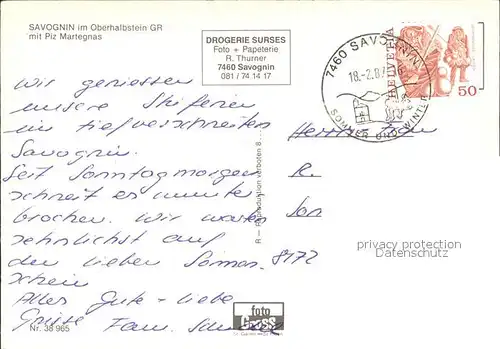 SAVOGNIN im Oberhalbstein GR
mit Piz Martegnas
DROGERIE SURSES
Foto + Papeterie
R. Thurner
7460 Savognin
081 / 74 14 17
7460 SAVOGNIN
18.-2.87
SOMMER UND WINTER
HELVETIA
50
Wir geniessen
unsere Skiferien
im tiefverschneiten
Savognin.
Seit Sonntagmorgen
schneit es ununter
brochen. Wir warten
sehnlichst auf
den lieben Sonnen-
schein
Alles Gute - liebe
Grüsse Fam.
R.
8172
R — Reproduktion verboten 8
privatsphäre
Datenschutz
foto
Nr. 38 965